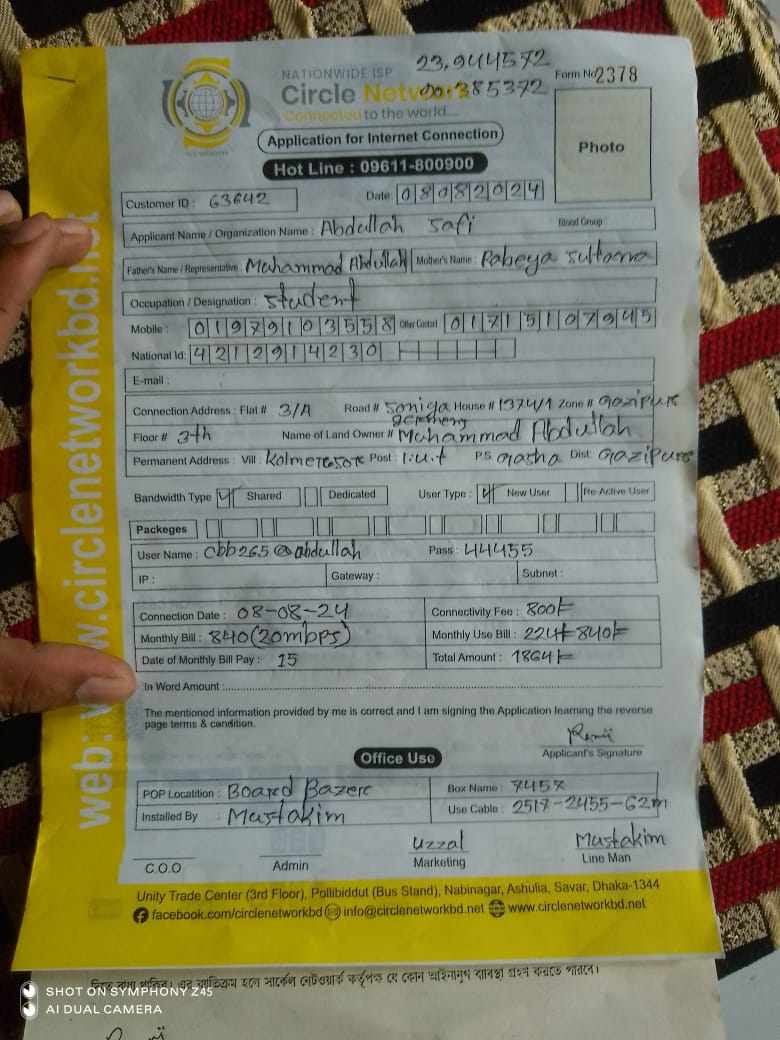 23.944572
NATIONWIDE ISP
Form No 2378
Circle Network 90.385372
Connected to the world....
Application for Internet Connection
Photo
Hot Line : 09611-800900
Customer ID : 63642 Date: 08082024
Applicant Name / Organization Name : Abdullah Safi Blood Group :
Father's Name / Representative : Muhammad Abdullah Mother's Name : Rabeya Sultana
Occupation / Designation : student
Mobile : 01979103558 Other Contact 01715107945
National Id: 4212914230
E-mail :
Connection Address : Flat # 3/A Road # Soniya House # 1374/1 Zone # Gazipur
Floor # 3th Name of Land Owner # Muhammad Abdullah
Permanent Address : Vill : Post : I.U.T P.S Gasha Dist: Gazipure
Bandwidth Type Shared Dedicated User Type : New User Re-Active User
Packeges
User Name : cbb265@abdullah Pass : 44455
IP : Gateway : Subnet :
Connection Date : 08-08-24 Connectivity Fee : 800/-
Monthly Bill : 840(20mbps) Monthly Use Bill : 224+840/-
Date of Monthly Bill Pay : 15 Total Amount : 1864/-
In Word Amount :
The mentioned information provided by me is correct and I am signing the Application learning the reverse
page terms & condition.
Applicant's Signature
Office Use
POP Locatition : Board Bazer Box Name : 7457
Installed By : Mustakim Use Cable : 2517-2455-62m
Uzzal Mustakim
C.O.O Admin Marketing Line Man
Unity Trade Center (3rd Floor), Pollibiddut (Bus Stand), Nabinagar, Ashulia, Savar, Dhaka-1344
facebook.com/circlenetworkbd info@circlenetworkbd.net www.circlenetworkbd.net
web: www.circlenetworkbd.net
এর ব্যতিক্রম হলে সার্কেল নেটওয়ার্ক কর্তৃপক্ষ যে কোন আইনানুগ ব্যবস্থা গ্রহন করতে পারবে।
SHOT ON SYMPHONY Z45
AI DUAL CAMERA